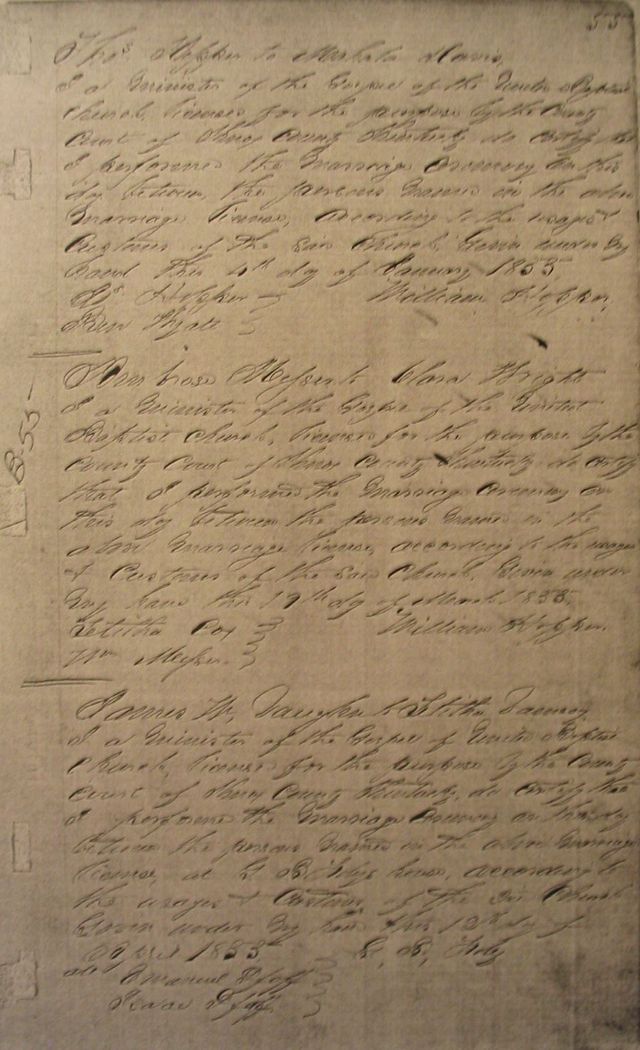 55
Thos Hopper to Mahala Davis,
I a Minister of the Gospel of the United Baptist
Church, licensed for the purpose by the County
Court of Knox County Kentucky do certify that
I performed the Marriage Ceremony on this
day between the persons named in the above
Marriage license, according to the usages &
Customs of the said Church, Given under my
hand this 4th day of January 1855
Hopper William Hopper
Ben Wyatt
B. 55
Ambrose Messer to Clara Wright
I a Minister of the Gospel of the United
Baptist Church, licensed for the purpose by the
County Court of Knox County Kentucky do certify
that I performed the Marriage Ceremony on
this day between the persons named in the
above Marriage license, according to the usages
& Customs of the said Church, Given under
my hand this 19th day of March 1855.
Letitha Cox William Hopper
Wm Messer
James W. Vaughn to
I a Minister of the Gospel of United Baptist
Church, licensed for the purpose by the County
Court of Knox County Kentucky, do certify that
I performed the Marriage Ceremony on this day
between the persons named in the above Marriage
license, at house, according to
the usages & Customs of the sd Church
Given under my hand this 12th day of
April 1855
Emanuel
Isaac